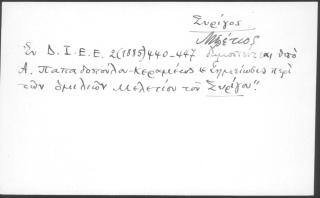 Συρίγος
Μελέτιος
Ἐν Δ.Ι.Ε.Ε. 2(1885)440-447 δημοσιεύεται ὑπὸ
Α. Παπαδοπούλου-Κεραμέως "Σημείωσις περὶ
τῶν ὁμιλιῶν Μελετίου τοῦ Συρίγου".